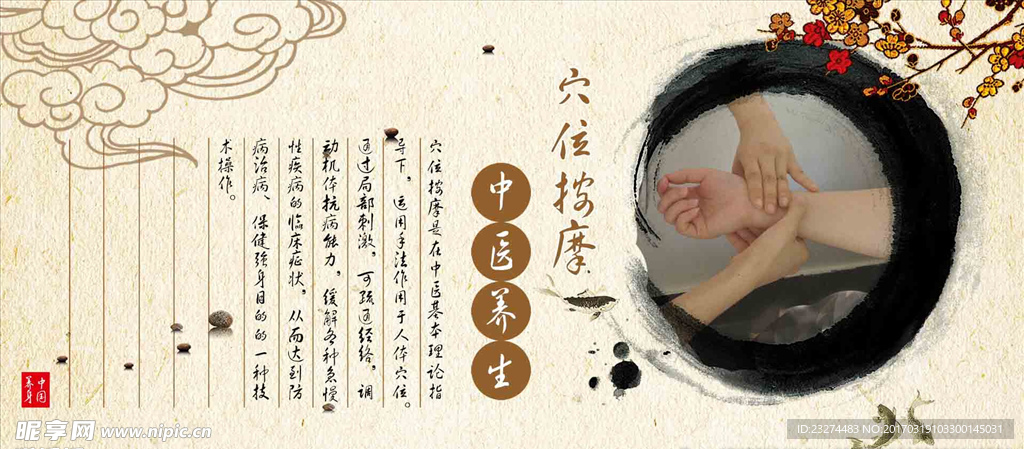 穴位按摩
中医养生
穴位按摩是在中医基本理论指
导下，运用手法作用于人体穴位。
通过局部刺激，可疏通经络，调
动机体抗病能力，缓解各种急慢
性疾病的临床症状，从而达到防
病治病、保健强身目的的一种技
术操作。
中国
养身
昵享网 www.nipic.cn
ID:23274483 NO:20170319103300145031